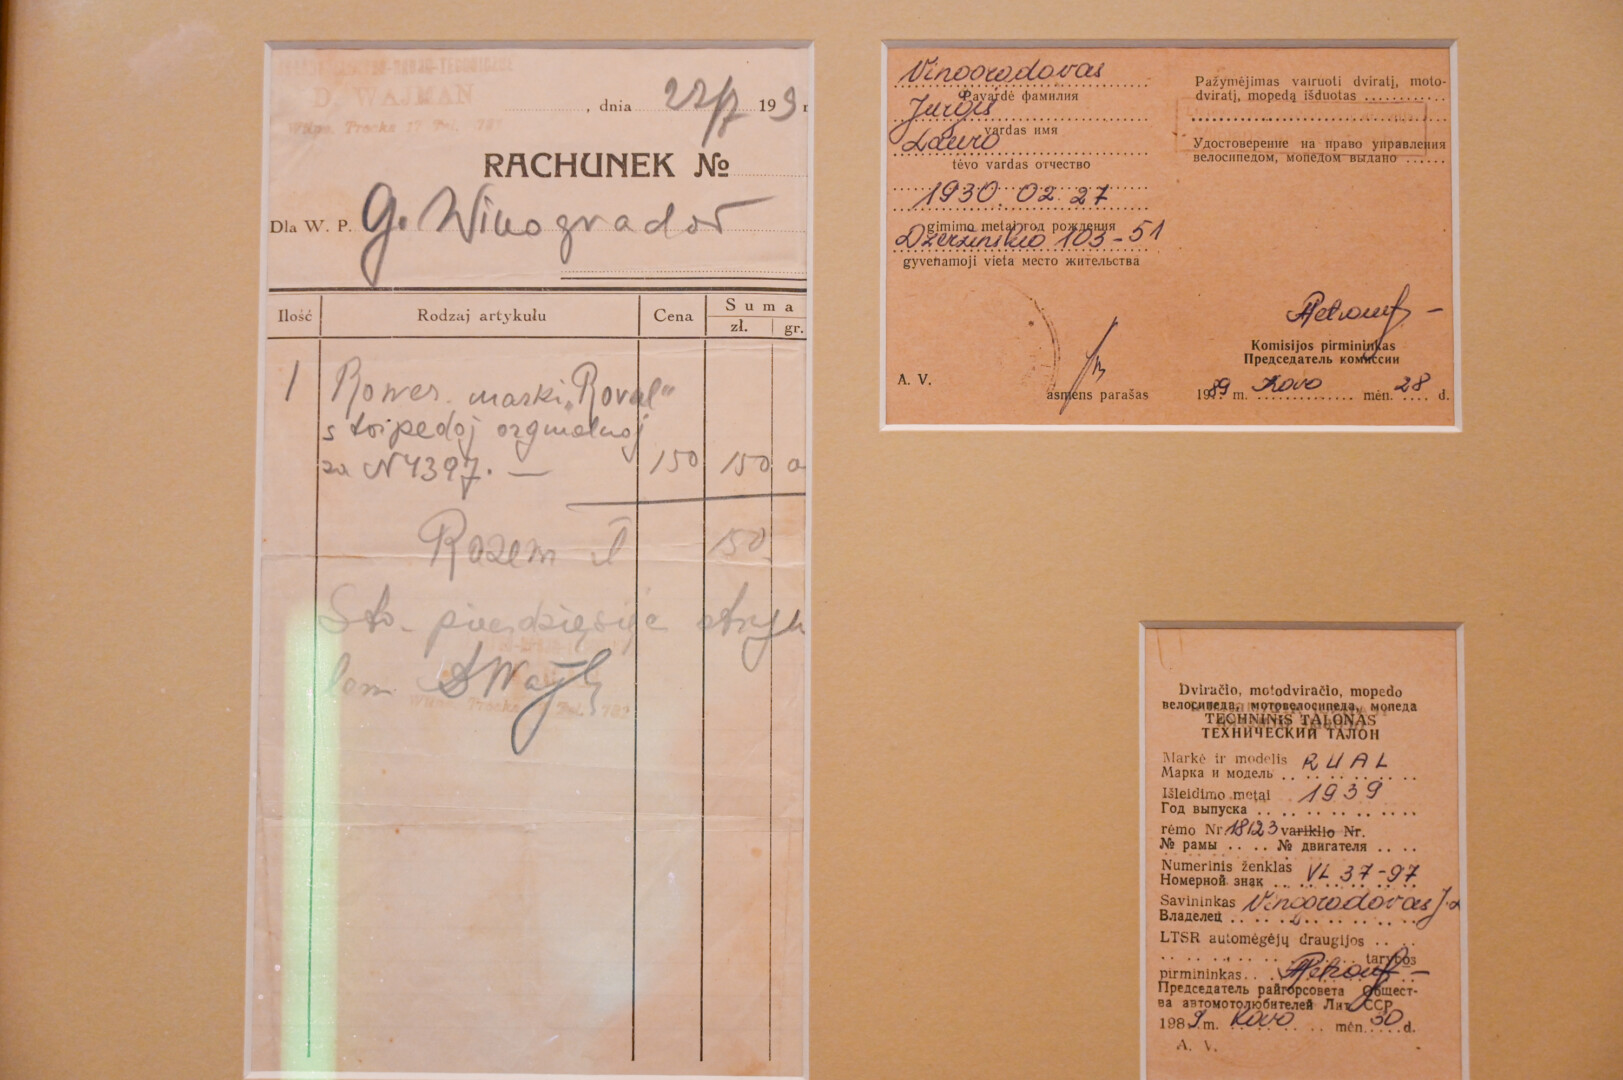 D. WAJMAN
Wilno, Trocka 17 Tel. 782
, dnia 22/7 193
RACHUNEK №
Dla W. P. G. Winogradow
Ilość Rodzaj artykułu Cena Suma
zł. gr.
1 Rower marki „Royal"
s torpedoj orginalnoj
za N 4397. — 150 150 0
Razem zł 150
Sto pierdziesije
D Waj
Wilno, Trocka Tel. 782
Vinogradovas
Pavardė фамилия
Jurgis
vardas имя
Lauro
tėvo vardas отчество
1930. 02. 27
gimimo metai год рождения
Dzeržinskio 103-51
gyvenamoji vieta место жительства
A. V.
asmens parašas
Pažymėjimas vairuoti dviratį, moto-
dviratį, mopedą išduotas
Удостоверение на право управления
велосипедом, мопедом выдано
Komisijos pirmininkas
Председатель комиссии
1989 m. Kovo mėn. 28 d.
Dviračio, motodviračio, mopedo
велосипеда, мотовелосипеда, мопеда
TECHNINIS TALONAS
ТЕХНИЧЕСКИЙ ТАЛОН
Markė ir modelis RUAL
Марка и модель
Išleidimo metai 1939
Год выпуска
rėmo Nr 18123 variklio Nr.
№ рамы № двигателя
Numerinis ženklas VL 37-97
Номерной знак
Savininkas Vinogradovas J.
Владелец
LTSR automėgėjų draugijos
tarybos
pirmininkas
Председатель райгорсовета Общест-
ва автомотолюбителей Лит. ССР
1989 m. Kovo mėn. 30 d.
A. V.